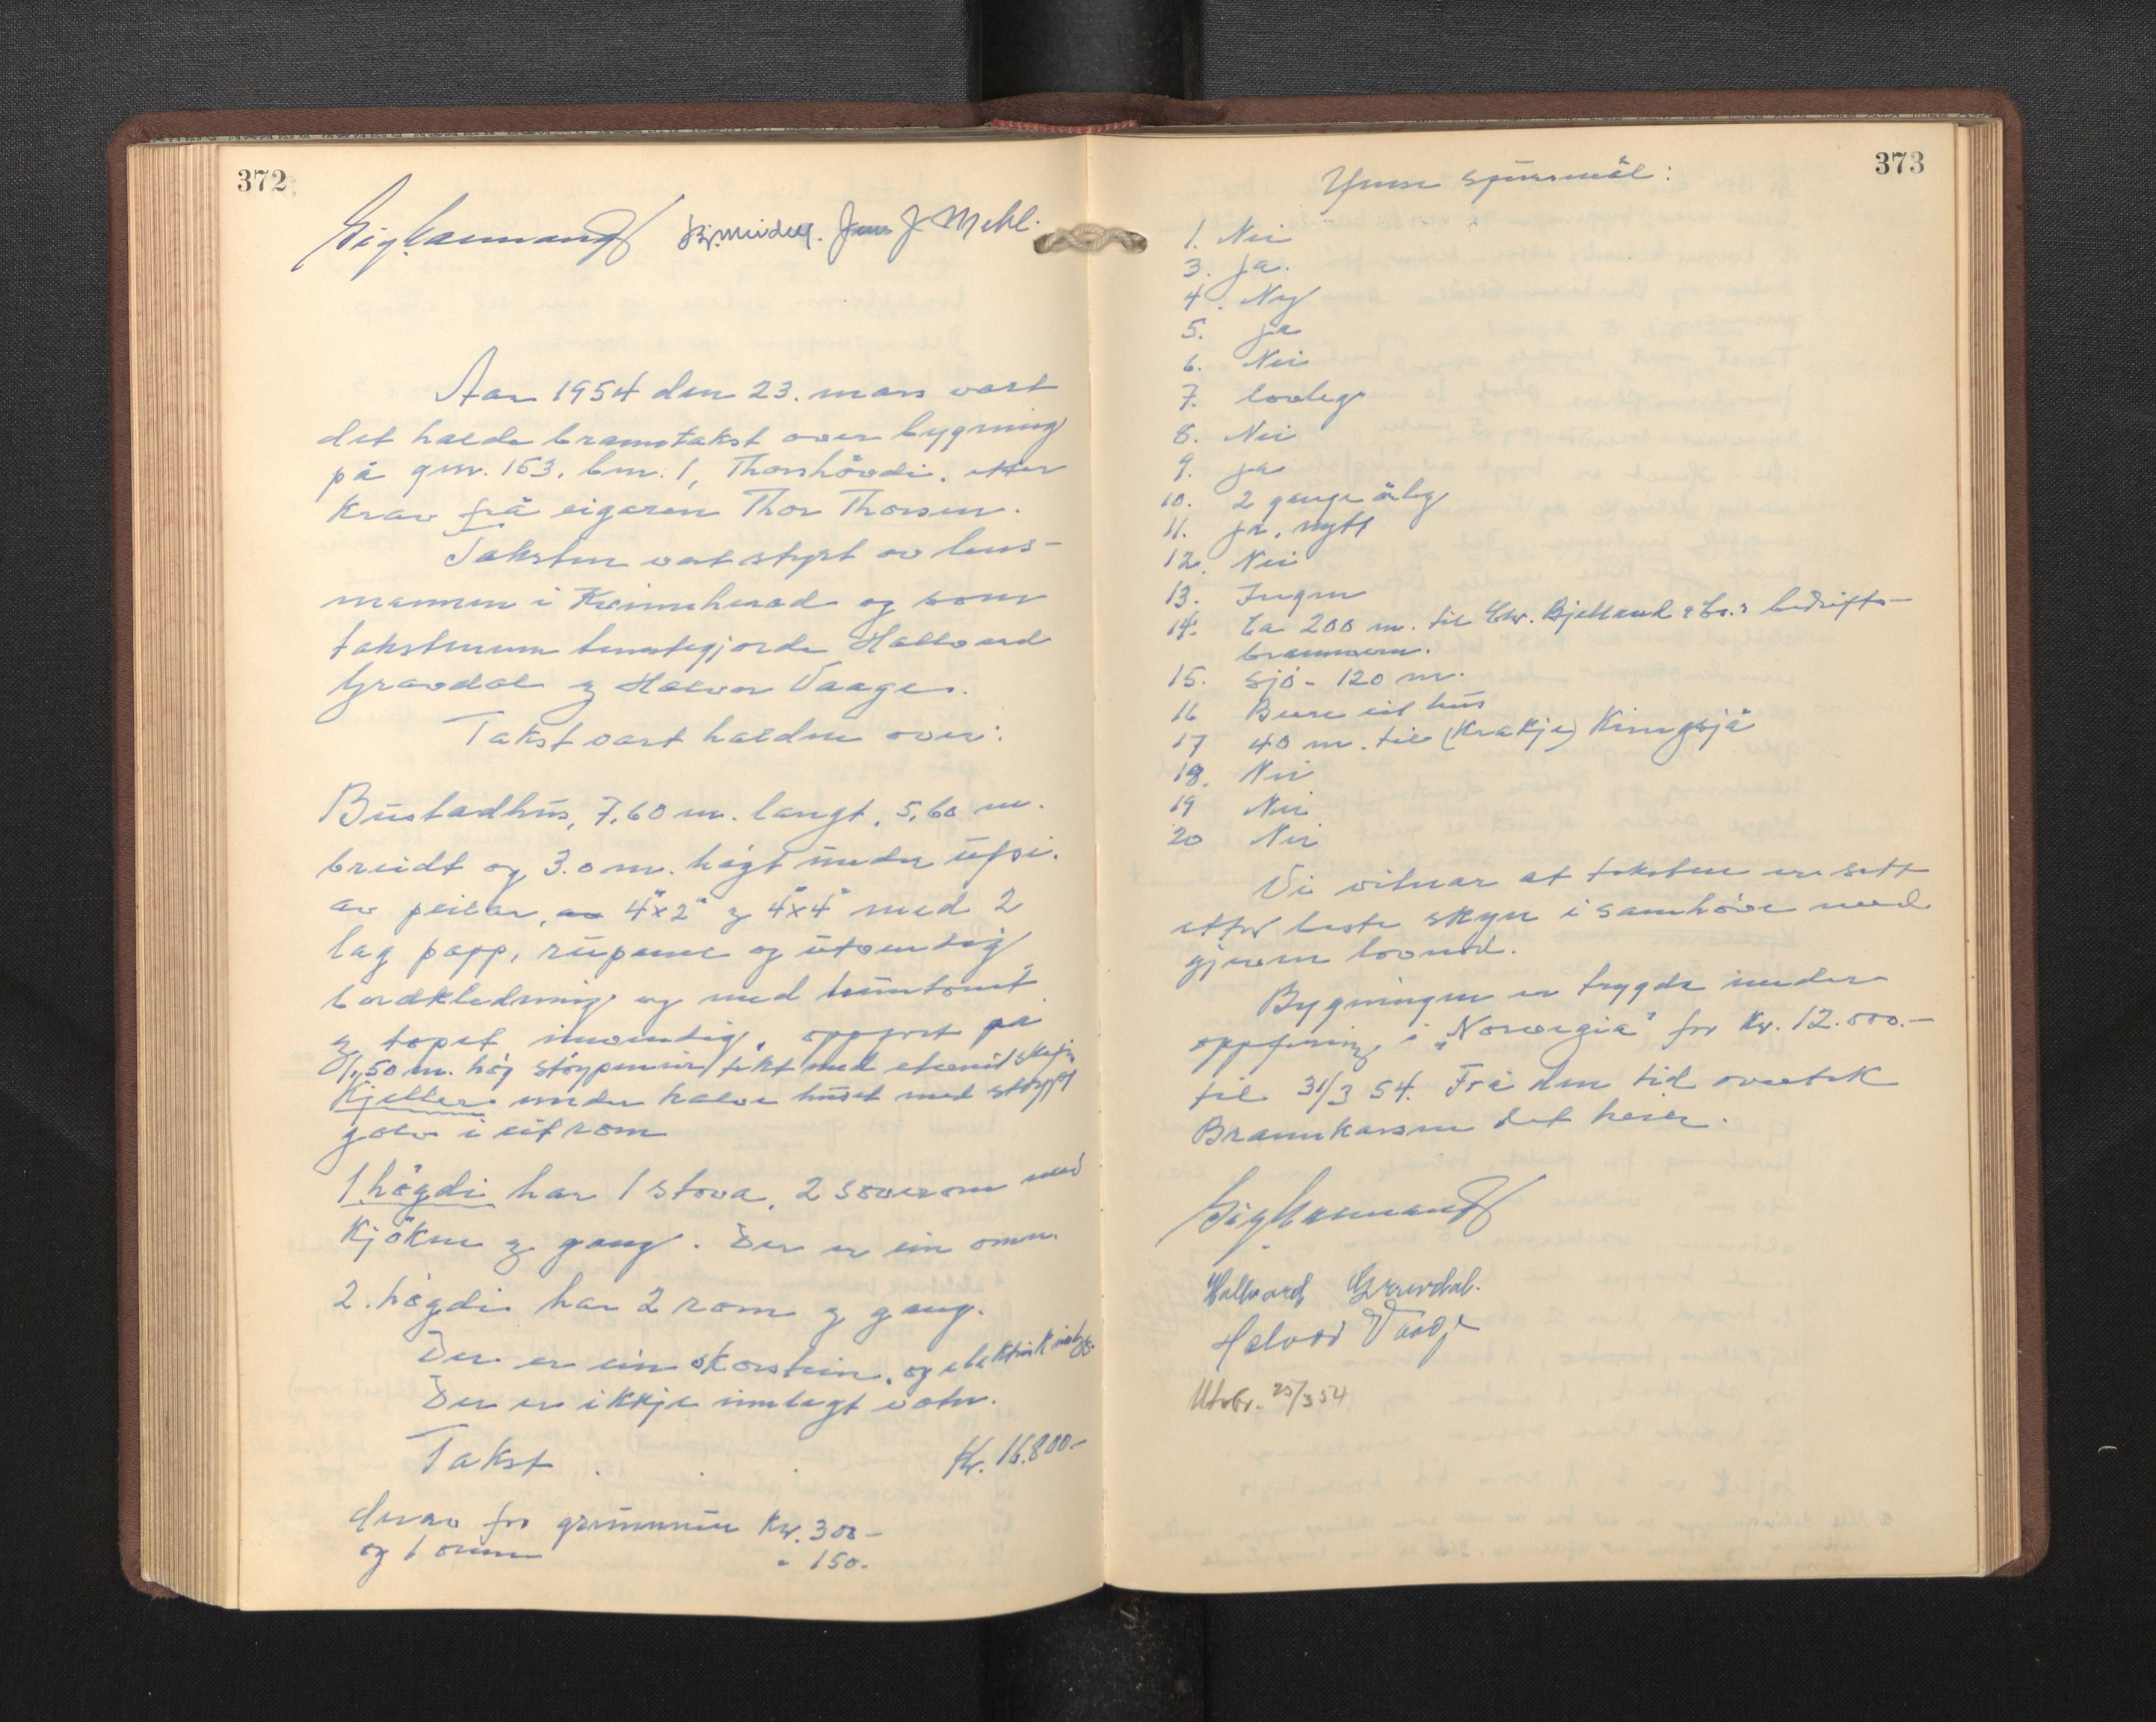 372
Jens J Mehl.
Aar 1954 den 23. mars vart
det halde branntakst over bygning
på gnr. 153, bnr. 1, Thorshövdi, etter
krav frå eigaren Thor Thorsen.
Taksten vart styrt av lens-
mannen i Kvinnherad og som
takstmenn tenestegjorde Hallvard
Gravdal og Halvor Vaage.
Takst vart halden over:
Bustadhus, 7,60 m. langt, 5,60 m.
breidt og 3.0 m. högt under ufsi.
av peilar, av 4"x2" og 4"x4" med 2
lag papp, rupanel og utvendig
bordkledning og med
og tapet innvendig, oppfört på
1,50 m. hög støypemur, tekt med eternitskifer
Kjeller under halve huset med støypt
golv i eit rom
1. högdi har 1 stova, 2 soverom med
kjöken og gang. Der er ein omn.
2. högdi har 2 rom og gang.
Der er ein skorstein, og elektrisk innlegg.
Der er ikkje innlagt vatn.
Takst . . . Kr. 16.800.-
derav for grunnmur Kr. 300-
og 1 omn " 150.
373
Ymse spursmål:
1. Nei
3. Ja.
4. Ny
5. Ja
6. Nei
7. lovleg
8. Nei
9. Ja
10. 2 gange årleg
11. Ja, nytt
12. Nei
13. Ingen
14. Ca 200 m. til Chr. Bjelland & Co.s bedrifts-
brannvern.
15. Sjö - 120 m.
16 Bere eit hus
17 40 m. til (Krakje) Kringsjå
18. Nei
19 Nei
20 Nei
Vi vitnar at taksten er sett
etter beste skyn i samhöve med
gjeven lovnad.
Bygningen er trygda under
oppföring i "Norvegia" for kr. 12.000.-
til 31/3 54. Frå den tid overtek
Brannkassen det heile.
Hallvard Gravdal.
Halvor Vaage
Utskr. 25/3 54